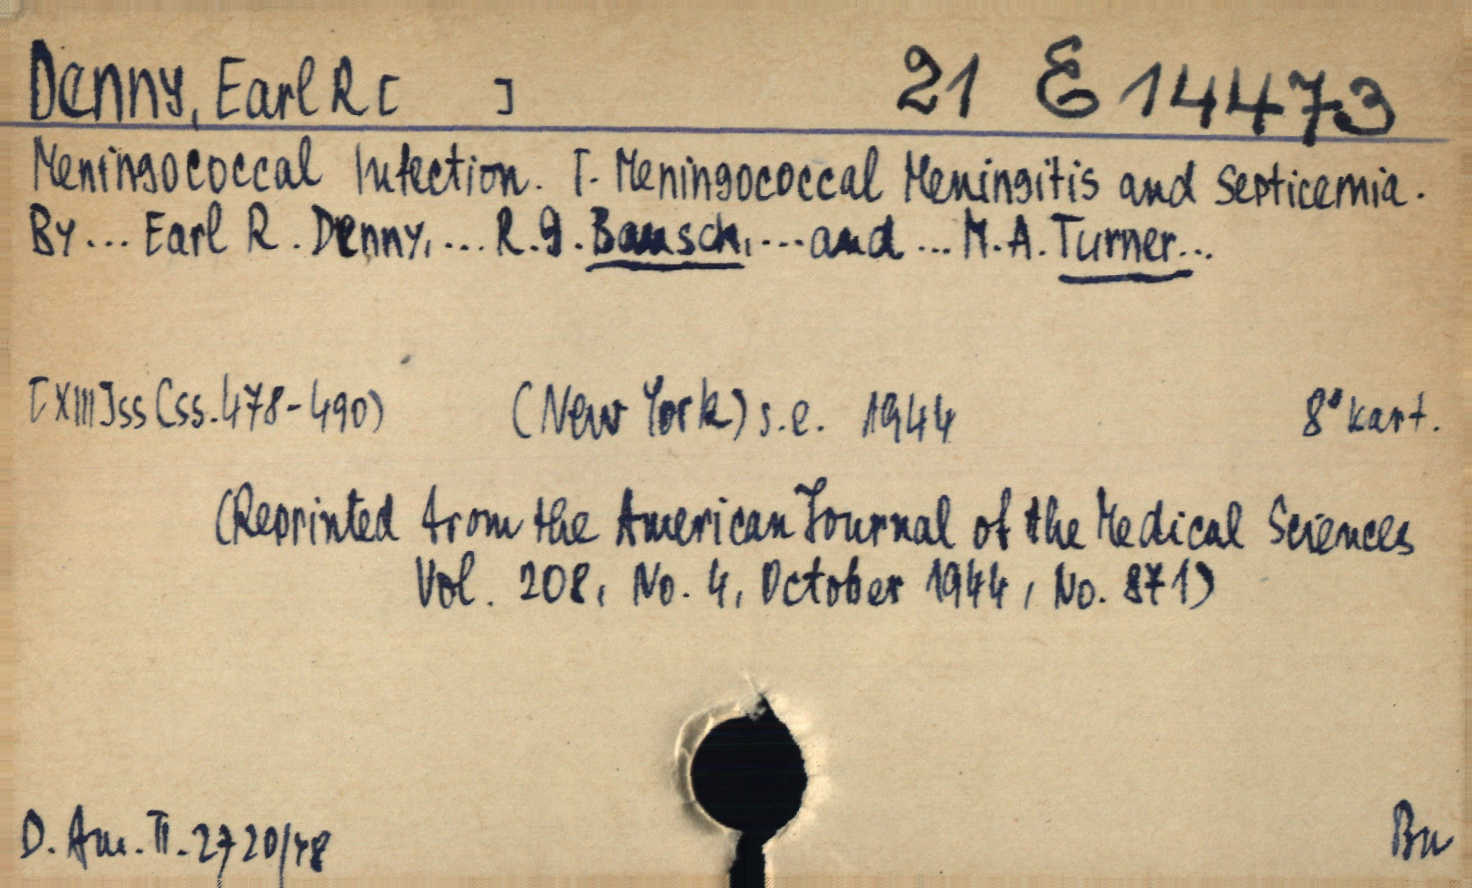 Denny, Earl R [ ] 21 E 14473
Meningococcal Infection. I. Meningococcal Meningitis and Septicemia.
By ... Earl R. Denny, ... R. G. Bausch, ... and ... M. A. Turner ...
[XIII] ss (ss. 478-490) (New York) s. e. 1944 8° kart.
(Reprinted from the American Journal of the Medical Sciences
Vol. 208, No. 4, October 1944, No. 871)
D. Am. II. 2720/48 Bu